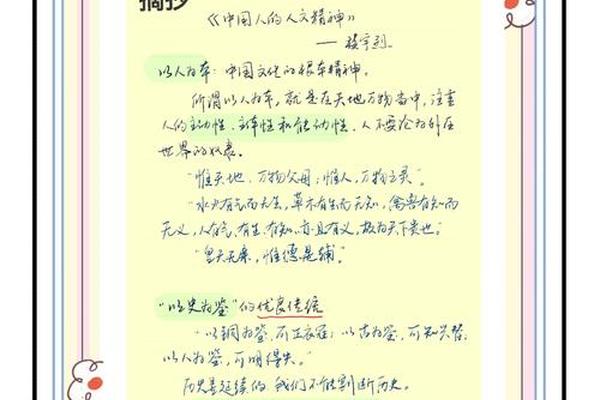 摘抄
《中国人的人文精神》
——楼宇烈
以人为本:中国文化的根本精神。
所谓以人为本,就是在天地万物当中,注重
人的主动性、主体性和能动性,人不要沦为外在
世界的奴隶。
"惟天地,万物父母;惟人,万物之灵"。
"水火有气而无生,草木有生而无知,禽兽有知而
无义,人有气、有生、有知,亦且有义,故为天下贵也。"
"皇天无亲,惟德是辅"
"以史为鉴"的优良传统
"以铜为鉴,可正衣冠;以古为鉴,可知兴替,
以人为鉴,可明得失。"
历史是延续的,我们不能割断历史。